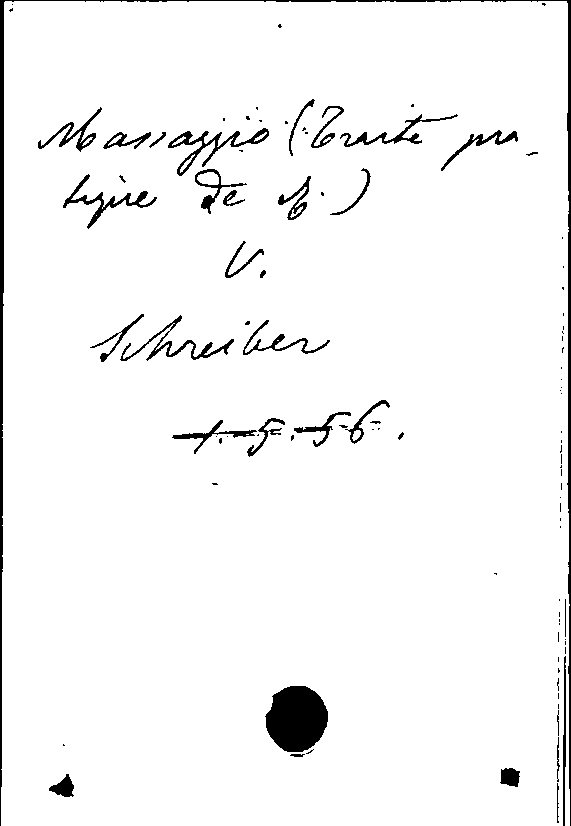 Massaggio (Traité pra-
tique de M.)
V.
Schreiber
1.5.56.